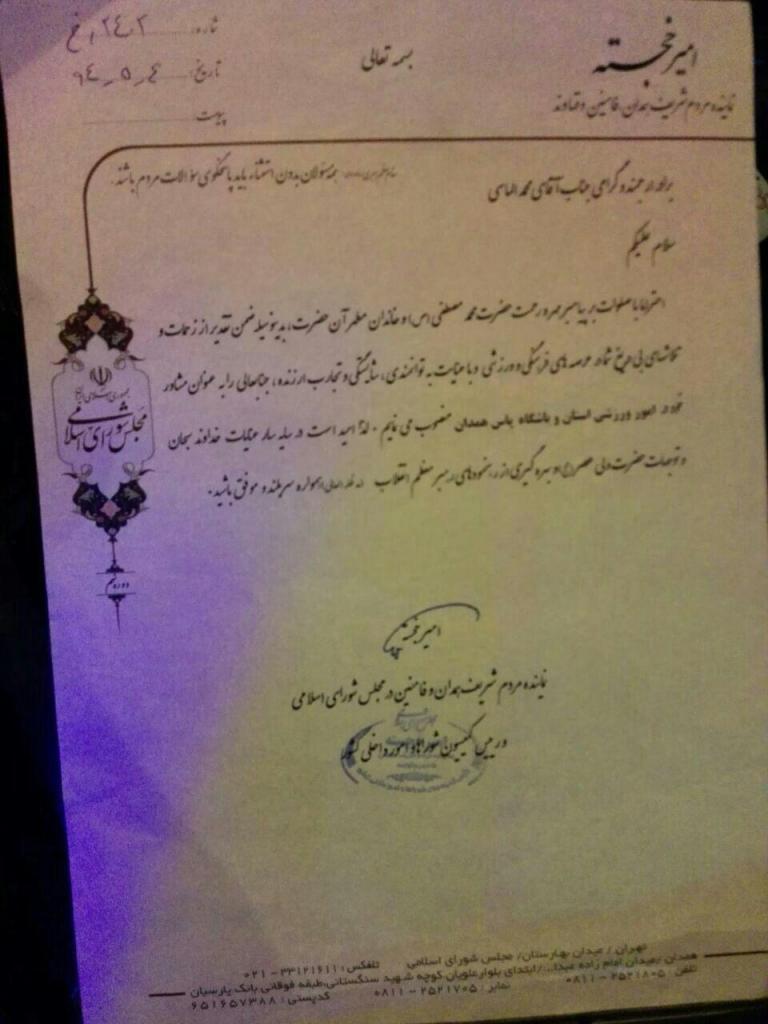 امیر خجسته
نماینده مردم شریف همدان، فامنین و قهاوند
بسمه تعالی
شماره: ۲۴۰۲/خ
تاریخ: ۴_۵_۹۴
پیوست
همه مسئولان بدون استثناء باید پاسخگوی سؤالات مردم باشند.
برادر ارجمند و گرامی جناب آقای محمد الماسی
سلام علیکم
احتراما با صلوات بر پیامبر مهر و رحمت حضرت محمد مصطفی (ص) و خاندان مطهر آن حضرت، بدینوسیله ضمن تقدیر از زحمات و
تلاشهای بی دریغ شما در عرصه های فرهنگی و ورزشی و با عنایت به توانمندی، شایستگی و تجارب ارزنده، جنابعالی را به عنوان مشاور
خود در امور ورزشی استان و باشگاه پاس همدان منصوب می نمایم. لذا امید است در سایه سار عنایات خداوند سبحان
و توجهات حضرت ولی عصر (عج) و بهره گیری از رهنمودهای رهبر معظم انقلاب (مد ظله العالی) همواره سربلند و موفق باشید.
جمهوری اسلامی ایران
مجلس شورای اسلامی
دوره نهم
امیر خجسته
نماینده مردم شریف همدان و فامنین در مجلس شورای اسلامی
و رییس کمیسیون شوراها و امور داخلی کشور
تهران / میدان بهارستان/ مجلس شورای اسلامی تلفکس: ۳۳۱۲۱۶۱۱ - ۰۲۱
همدان /میدان امام زاده عبدا.../ابتدای بلوار علویان،کوچه شهید سنگستانی،طبقه فوقانی بانک پارسیان
تلفن: ۲۵۲۱۸۰۵ - ۰۸۱۱ نمابر: ۲۵۲۱۷۰۵ - ۰۸۱۱ کدپستی: ۶۵۱۶۵۷۳۸۸